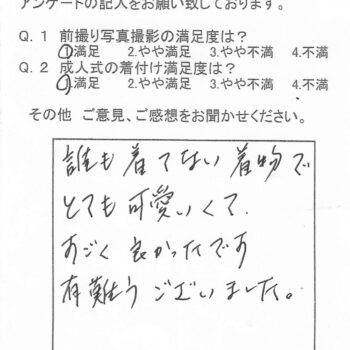 アンケートの記入をお願い致しております。
Q.1 前撮り写真撮影の満足度は?
1.満足 2.やや満足 3.やや不満 4.不満
Q.2 成人式の着付け満足度は?
1.満足 2.やや満足 3.やや不満 4.不満
その他 ご意見、ご感想をお聞かせください。
誰も着てない着物で
とても可愛いくて.
すごく良かったです
有難うございました。